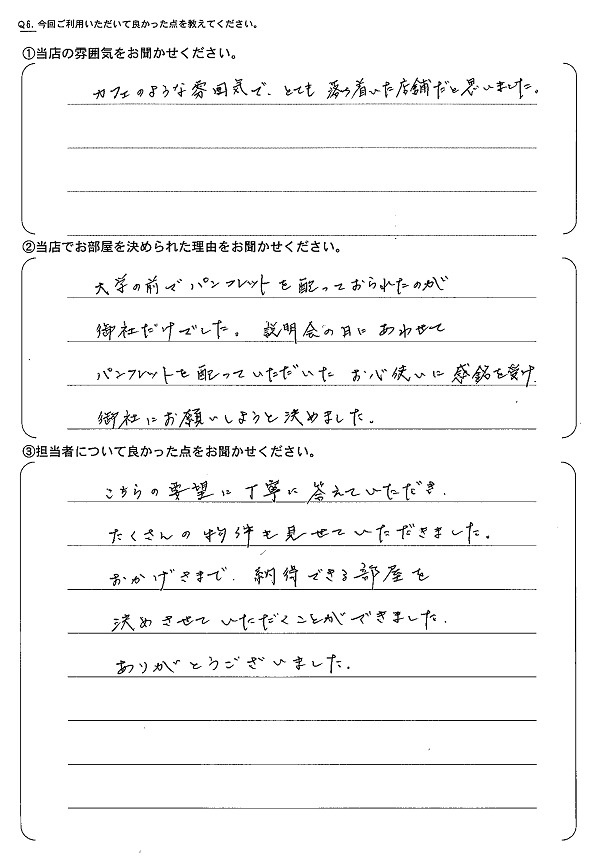 Q6. 今回ご利用いただいて良かった点を教えてください。
①当店の雰囲気をお聞かせください。
カフェのような雰囲気で、とても落ち着いた店舗だと思いました。
②当店でお部屋を決められた理由をお聞かせください。
大学の前でパンフレットを配っておられたのが
御社だけでした。説明会の日にあわせて
パンフレットを配っていただいたお心使いに感銘を受け
御社にお願いしようと決めました。
③担当者について良かった点をお聞かせください。
こちらの要望に丁寧に答えていただき、
たくさんの物件も見せていただきました。
おかげさまで、納得できる部屋を
決めさせていただくことができました。
ありがとうございました。